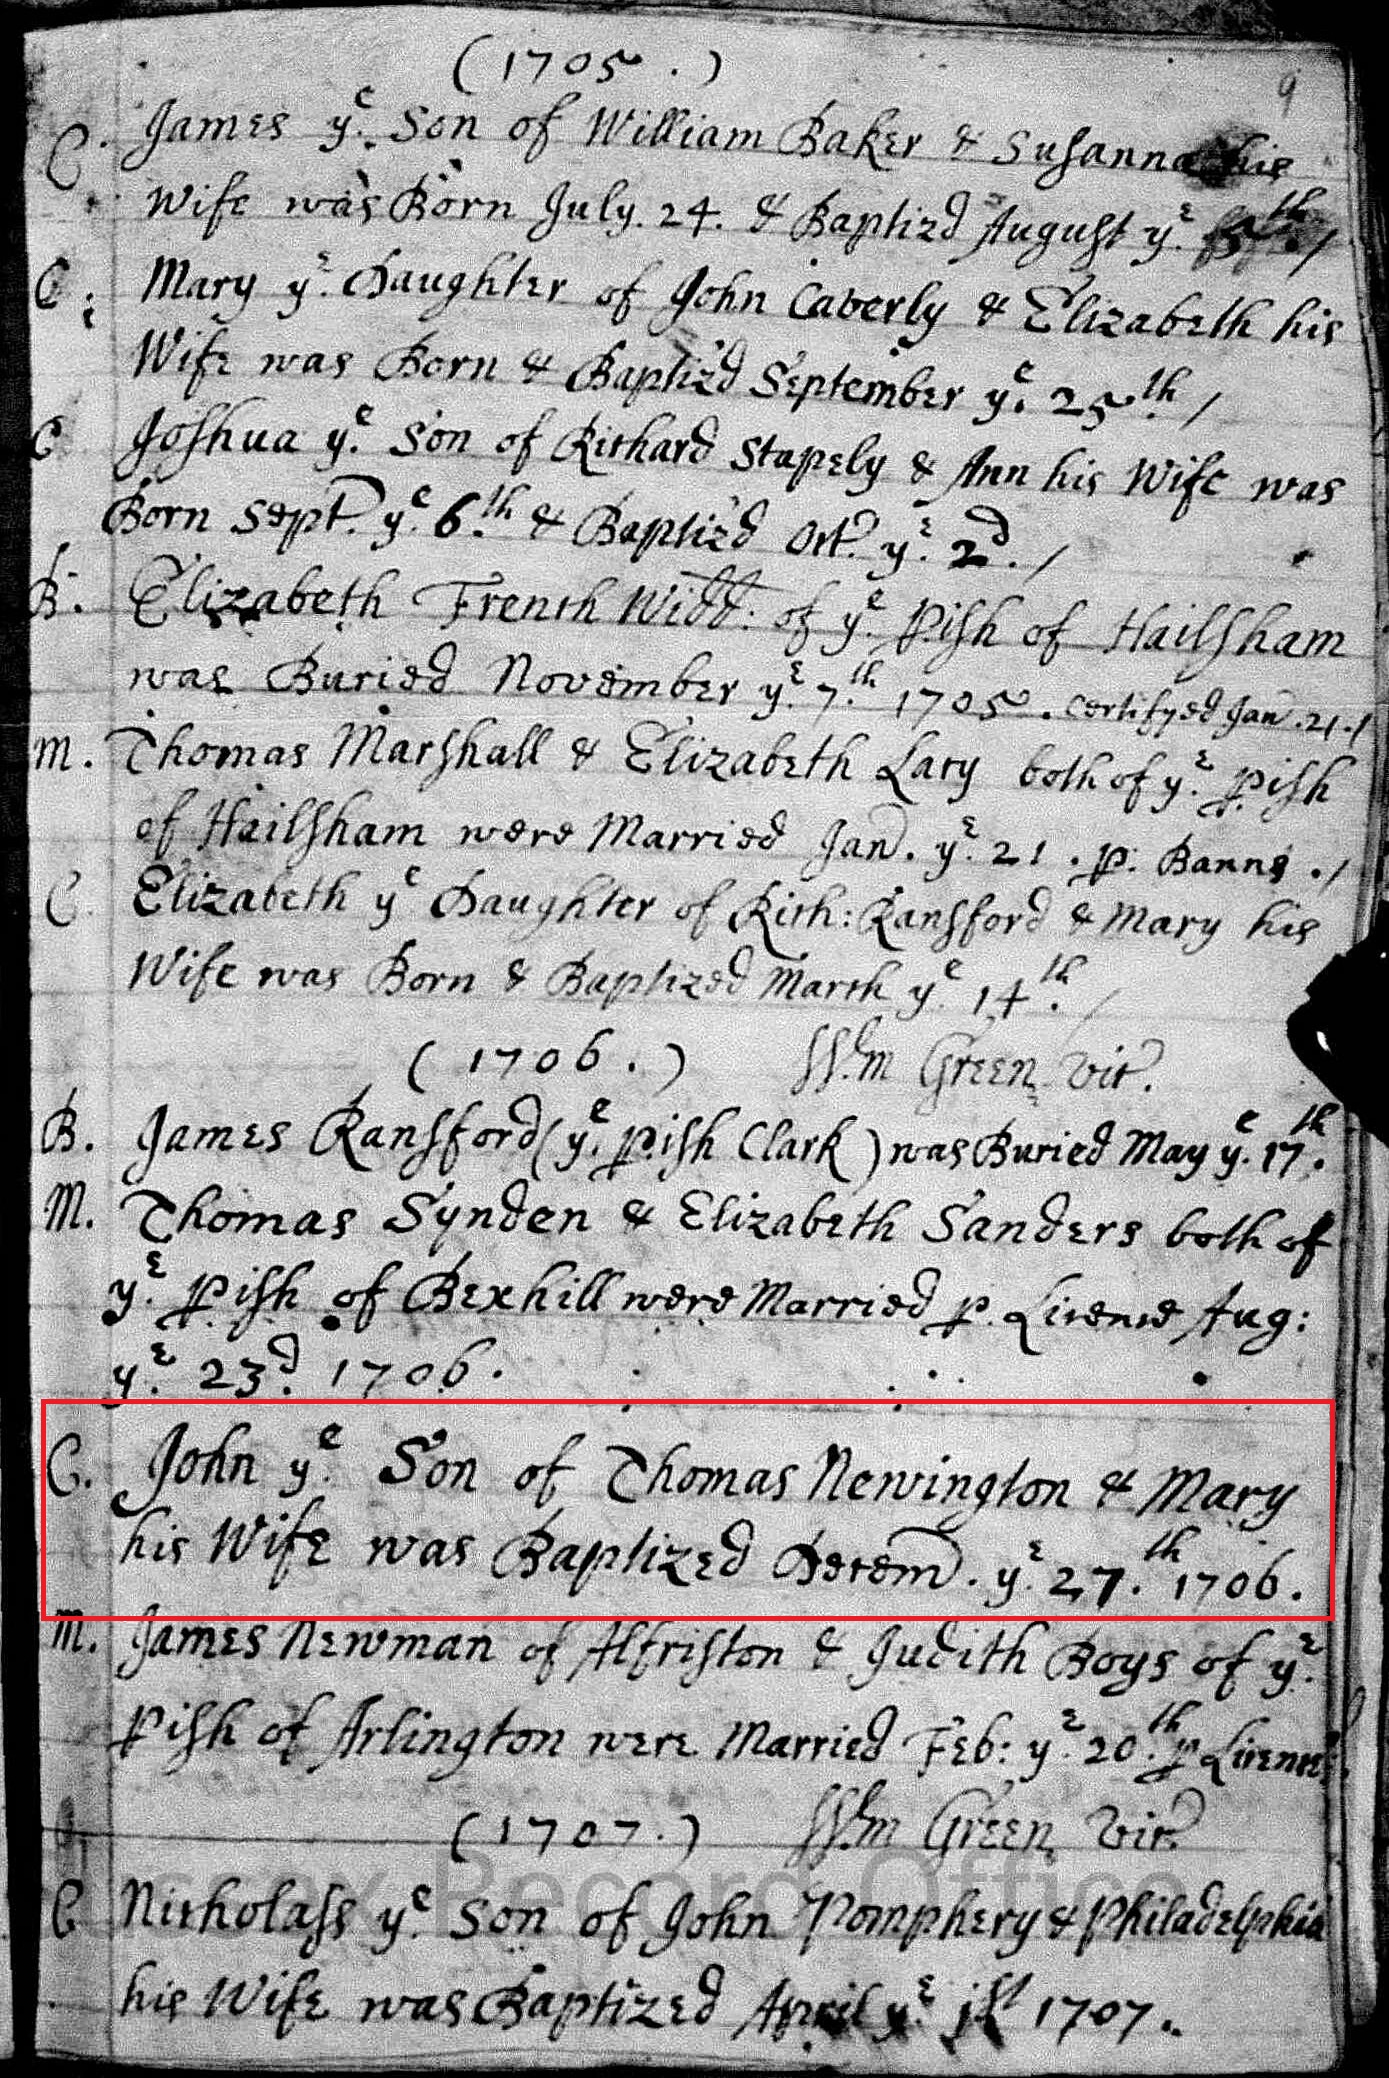 (1705.)
9
C. James ye. Son of William Baker & Susanna his
Wife was Born July. 24. & Baptizd August ye. 5th. /
C. Mary ye. Daughter of John Caverly & Elizabeth his
Wife was Born & Baptiz'd September ye. 25th. /
C Joshua ye. Son of Richard Stapely & Ann his Wife was
Born Sept. ye. 6.th & Baptiz'd Oct. ye. 2d. /
B. Elizabeth French Widd: of ye. Pish of Hailsham
was Buried November ye. 7.th 1705. Certifyed Jan. 21. /
M. Thomas Marshall & Elizabeth Lacy both of ye. Pish
of Hailsham were Married Jan. ye. 21. p. Banns. /
C. Elizabeth ye Daughter of Rich: Ransford & Mary his
Wife was Born & Baptized March ye 14th. /
(1706.) Wm Green Vic.
B. James Ransford (ye. Pish Clark) was Buried May ye. 17th.
M. Thomas Synden & Elizabeth Sanders both of
ye. Pish of Bexhill were Married p. Licence Aug:
ye. 23d. 1706.
C. John ye. Son of Thomas Newington & Mary
his Wife was Baptized Decem. ye. 27.th 1706.
M. James Newman of Alfriston & Judith Boys of ye.
Pish of Arlington were Married Feb: ye. 20.th p Licence
(1707.) Wm Green Vic.
Record Office
C Nicholass ye Son of John Pomphery & Philadelphia
his Wife was Baptized April ye 1st 1707.